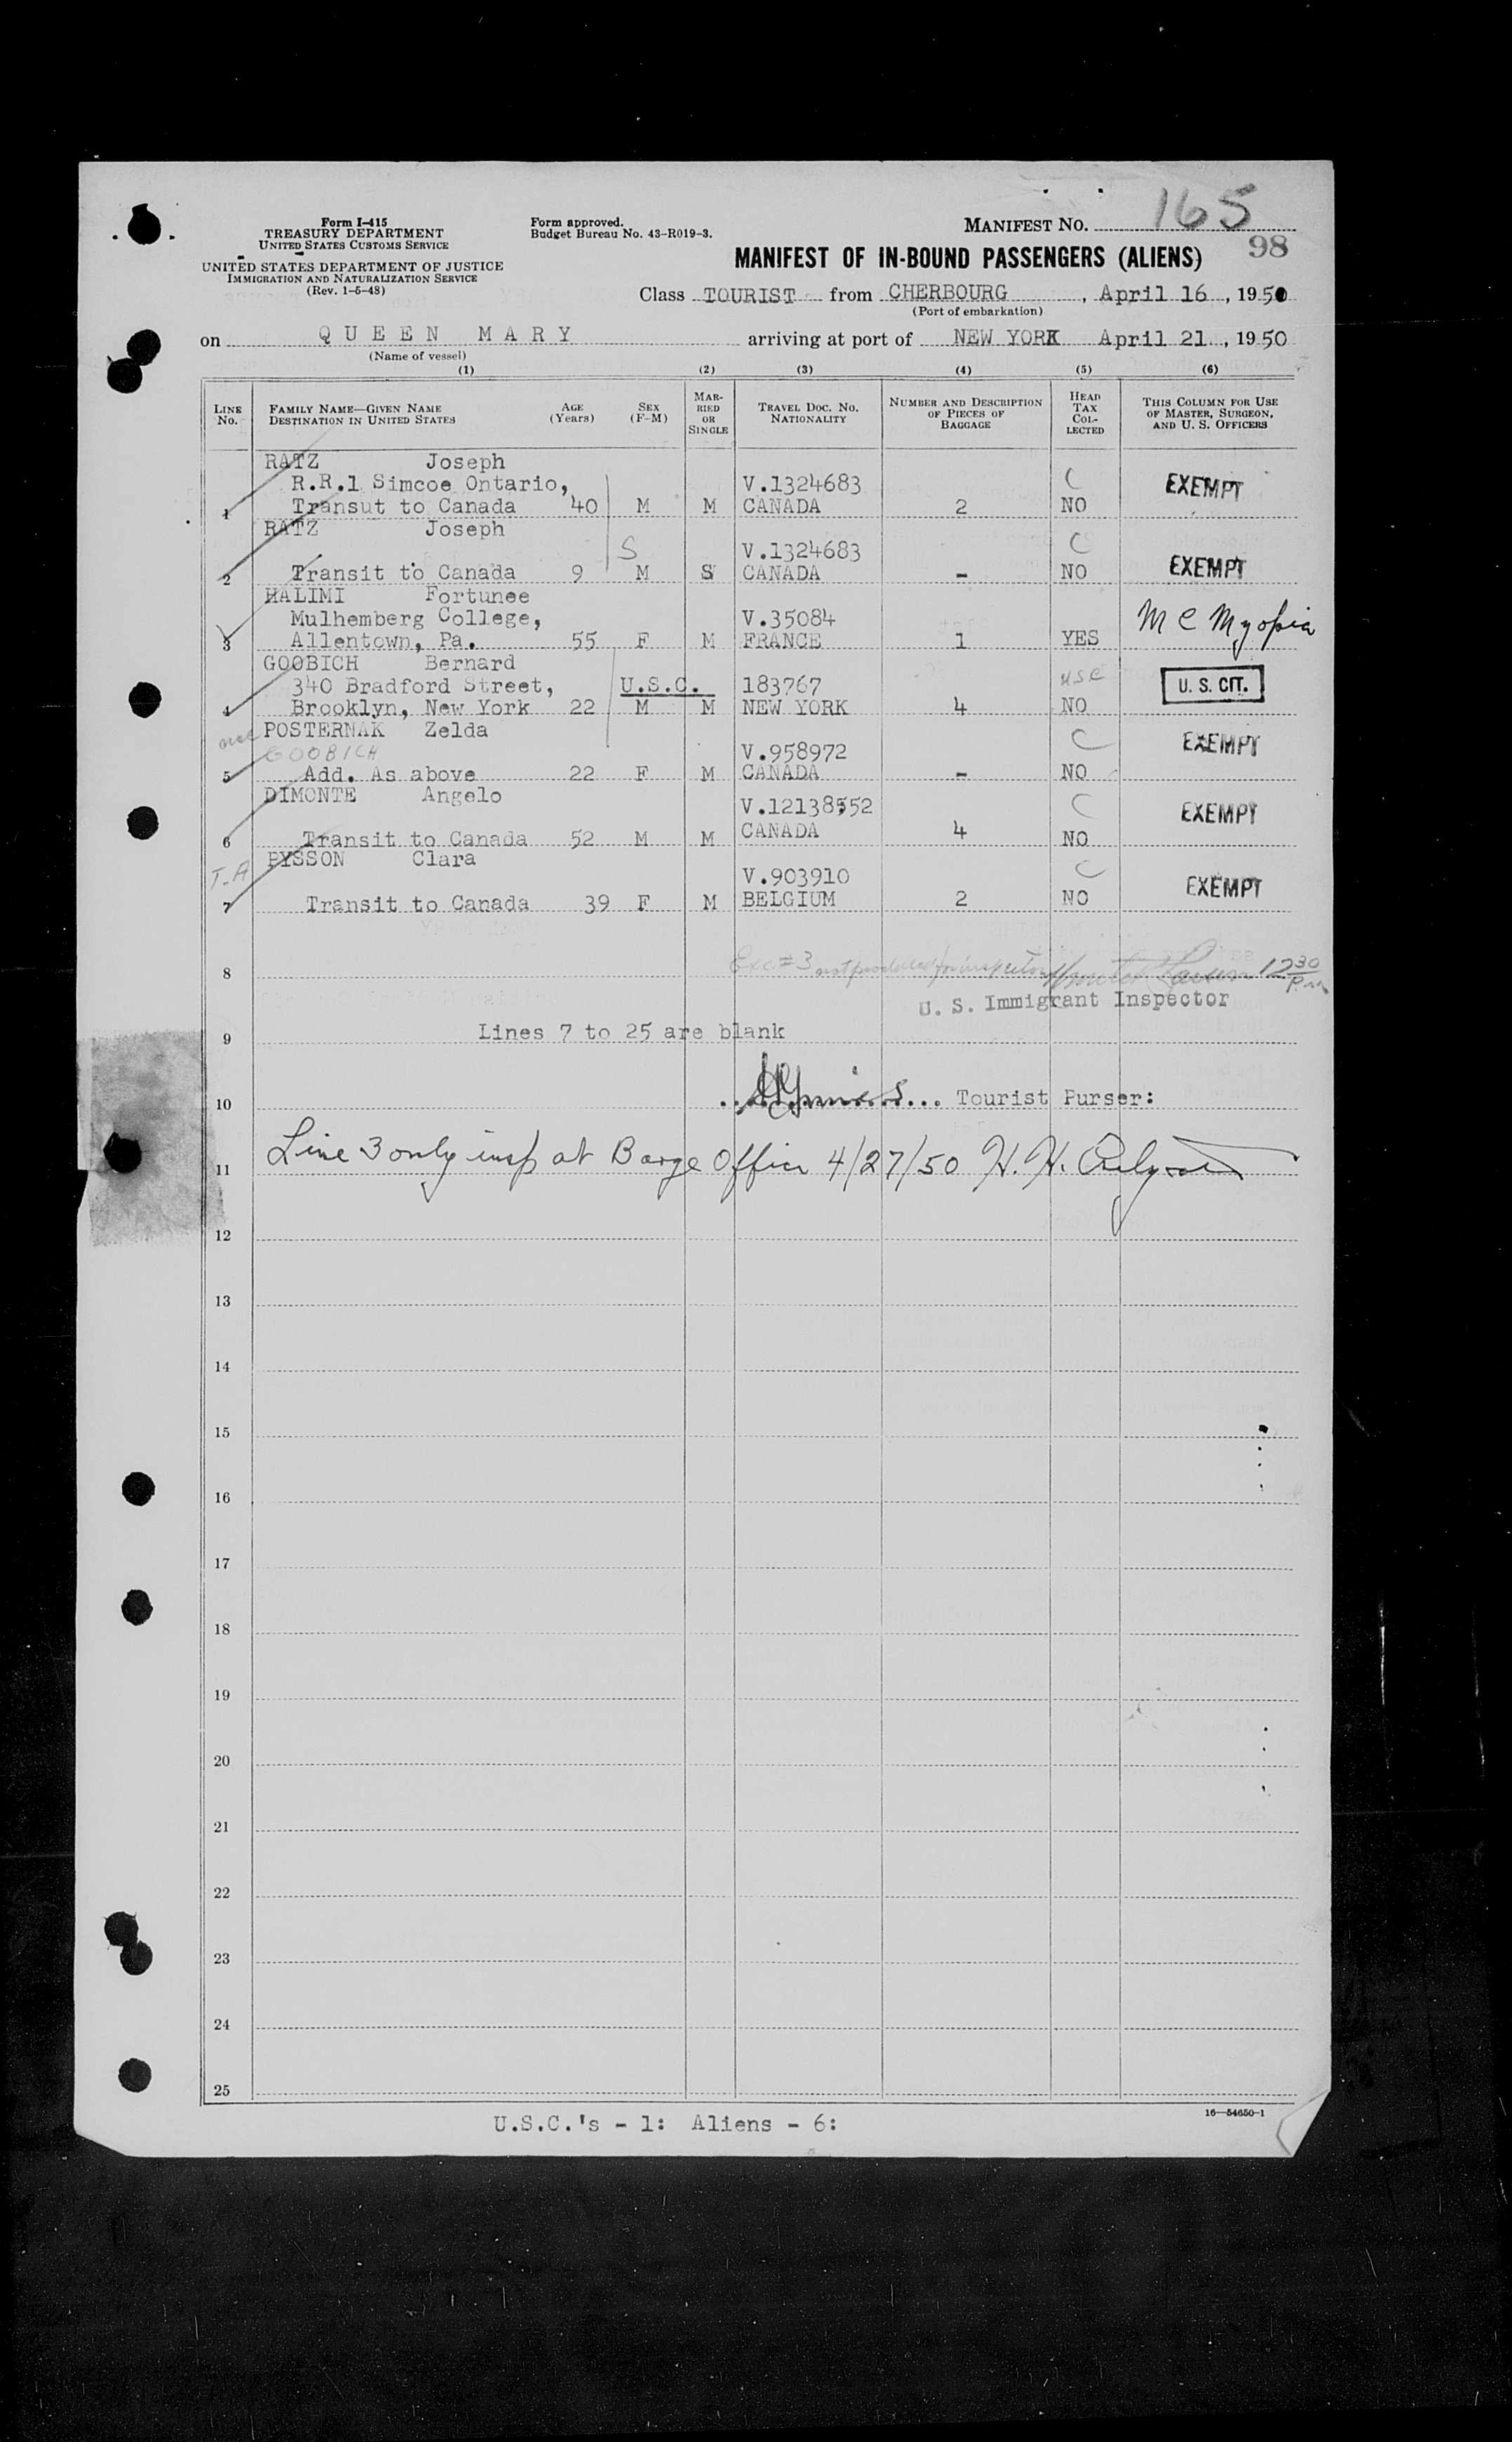 Form I-415
TREASURY DEPARTMENT
UNITED STATES CUSTOMS SERVICE
UNITED STATES DEPARTMENT OF JUSTICE
IMMIGRATION AND NATURALIZATION SERVICE
(Rev. 1-5-48)
Form approved.
Budget Bureau No. 43-R019-3.
MANIFEST NO. 165
98
MANIFEST OF IN-BOUND PASSENGERS (ALIENS)
Class TOURIST from CHERBOURG, April 16, 1950
(Port of embarkation)
on QUEEN MARY arriving at port of NEW YORK April 21, 1950
(Name of vessel)
(1) (2) (3) (4) (5) (6)
LINE No. FAMILY NAME—GIVEN NAME DESTINATION IN UNITED STATES AGE (Years) SEX (F-M) MARRIED OR SINGLE TRAVEL DOC. NO. NATIONALITY NUMBER AND DESCRIPTION OF PIECES OF BAGGAGE HEAD TAX COLLECTED THIS COLUMN FOR USE OF MASTER, SURGEON, AND U. S. OFFICERS
RATZ Joseph
R.R.1 Simcoe Ontario, V.1324683 C EXEMPT
1 Transut to Canada 40 M M CANADA 2 NO
RATZ Joseph
S V.1324683 C EXEMPT
2 Transit to Canada 9 M S CANADA - NO
HALIMI Fortunee
Mulhemberg College, V.35084 M C Myopia
3 Allentown, Pa. 55 F M FRANCE 1 YES
GOOBICH Bernard
340 Bradford Street, U.S.C. 183767 USC U. S. CIT.
4 Brooklyn, New York 22 M M NEW YORK 4 NO
POSTERNAK Zelda
GOOBICH V.958972 C EXEMPT
5 Add. As above 22 F M CANADA - NO
DIMONTE Angelo
V.12138552 C EXEMPT
6 Transit to Canada 52 M M CANADA 4 NO
T.A PYSSON Clara
V.903910 C EXEMPT
7 Transit to Canada 39 F M BELGIUM 2 NO
8 Exc #3 not produced for inspection 12 30 P.m
U. S. Immigrant Inspector
9 Lines 7 to 25 are blank
10 Tourist Purser:
11 Line 3 only insp at Barge Office 4/27/50 H. H.
12
13
14
15
16
17
18
19
20
21
22
23
24
25
16—54650-1
U.S.C.'s - 1: Aliens - 6: